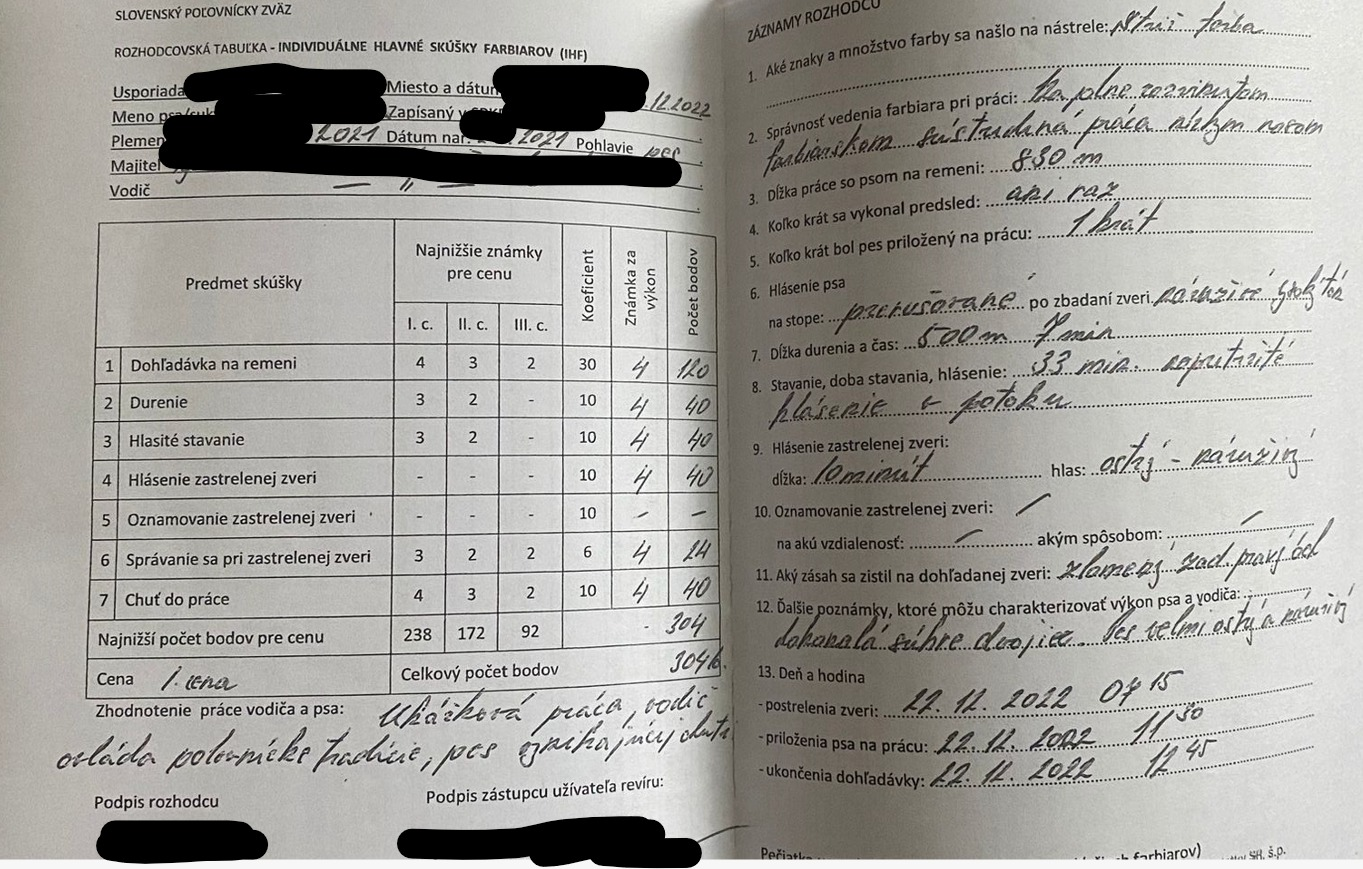 SLOVENSKÝ POĽOVNÍCKY ZVÄZ
ROZHODCOVSKÁ TABUĽKA - INDIVIDUÁLNE HLAVNÉ SKÚŠKY FARBIAROV (IHF)
Usporiada Miesto a dátum .12.2022
Meno Zapísaný v
Plemen 2021 Dátum nar. .2021 Pohlavie pes
Majiteľ
Vodič — " —
Predmet skúšky Najnižšie známky pre cenu Koeficient Známka za výkon Počet bodov
I. c. II. c. III. c.
1 Dohľadávka na remeni 4 3 2 30 4 120
2 Durenie 3 2 - 10 4 40
3 Hlasité stavanie 3 2 - 10 4 40
4 Hlásenie zastrelenej zveri - - - 10 4 40
5 Oznamovanie zastrelenej zveri - - - 10 – –
6 Správanie sa pri zastrelenej zveri 3 2 2 6 4 24
7 Chuť do práce 4 3 2 10 4 40
Najnižší počet bodov pre cenu 238 172 92 - 304
Cena I. cena Celkový počet bodov 304b.
Zhodnotenie práce vodiča a psa: Ukážková práca, vodič
ovláda poľovnícke tradície, pes
Podpis rozhodcu Podpis zástupcu užívateľa revíru:
ZÁZNAMY ROZHODCU
1. Aké znaky a množstvo farby sa našlo na nástrele: Striž farba
2. Správnosť vedenia farbiara pri práci: Na plne rozvinutom
farbiarskom sústredená práca nízkym nosom
3. Dĺžka práce so psom na remeni: 830 m
4. Koľko krát sa vykonal predsled: ani raz
5. Koľko krát bol pes priložený na prácu: 1 krát
6. Hlásenie psa
na stope: prerušované po zbadaní zveri náruživé
7. Dĺžka durenia a čas: 500 m 7 min
8. Stavanie, doba stavania, hlásenie: 33 min. nepretržité
hlásenie v potoku
9. Hlásenie zastrelenej zveri:
dĺžka: 10 minút hlas: ostrý - náruživý
10. Oznamovanie zastrelenej zveri: –
na akú vzdialenosť: – akým spôsobom: –
11. Aký zásah sa zistil na dohľadanej zveri: zlomený zad. pravý
12. Ďalšie poznámky, ktoré môžu charakterizovať výkon psa a vodiča:
dokonalá súhra dvojice. Pes veľmi ostrý a náruživý
13. Deň a hodina
- postrelenia zveri: 22. 12. 2022 07 15
- priloženia psa na prácu: 22. 12. 2022 11 30
- ukončenia dohľadávky: 22. 12. 2022 12 45
farbiarov)
š.p.